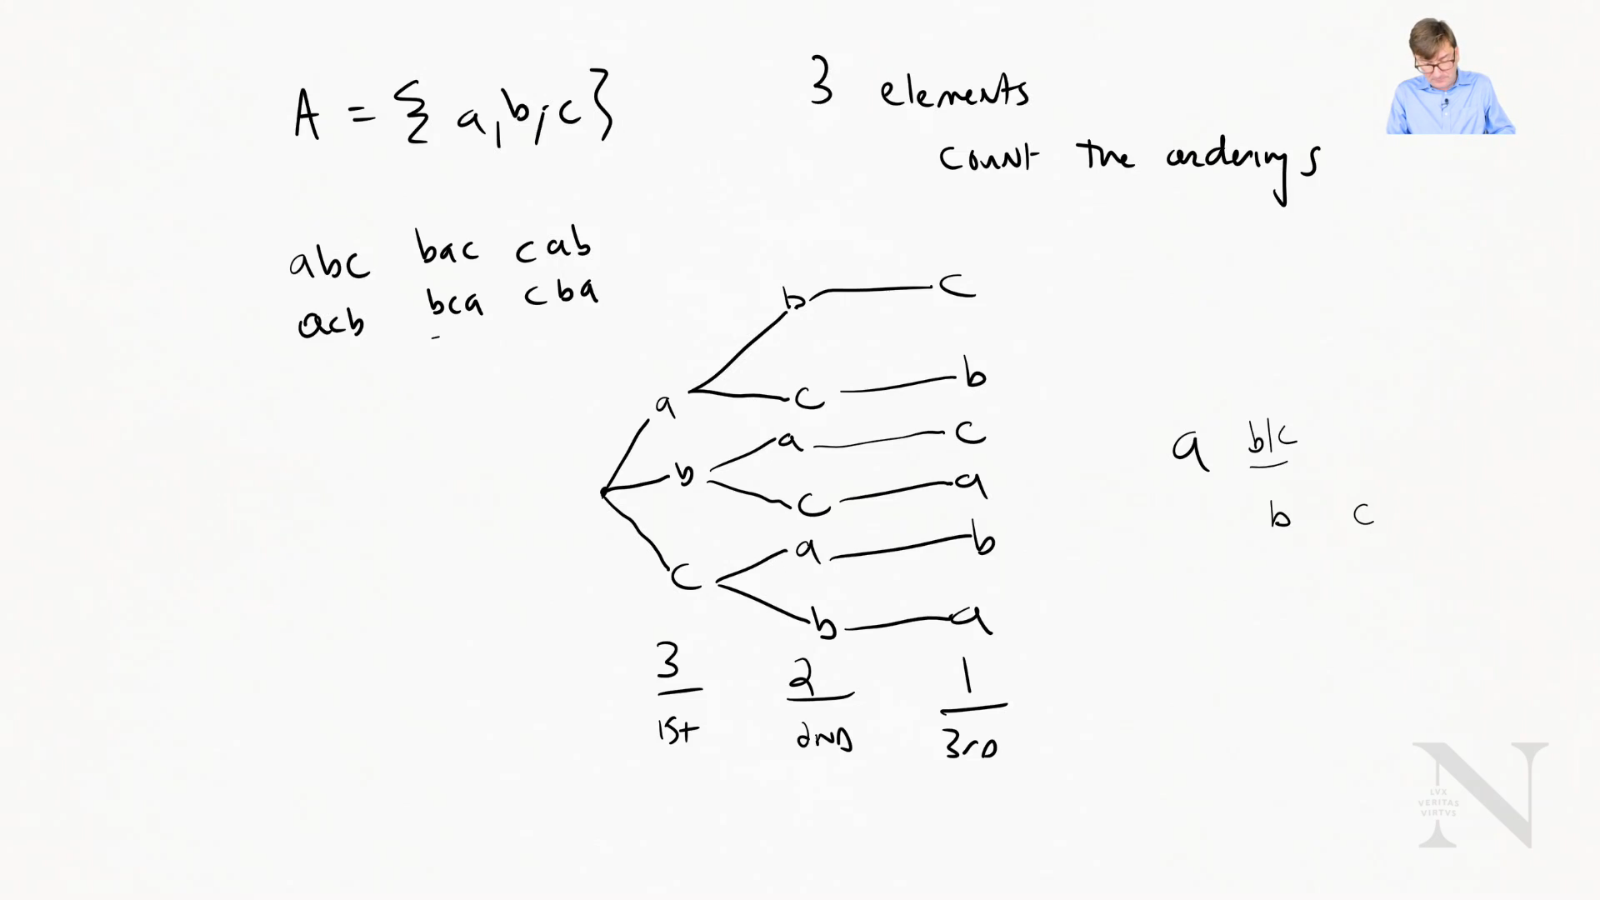 A = { a, b, c }
3 elements
count the orderings
abc bac cab
acb bca cba
b c
c b
a
a c
b
c a
a b
c
b a
3 2 1
1st 2ND 3rD
a b|c
b c
N
LVX
VERITAS
VIRTVS